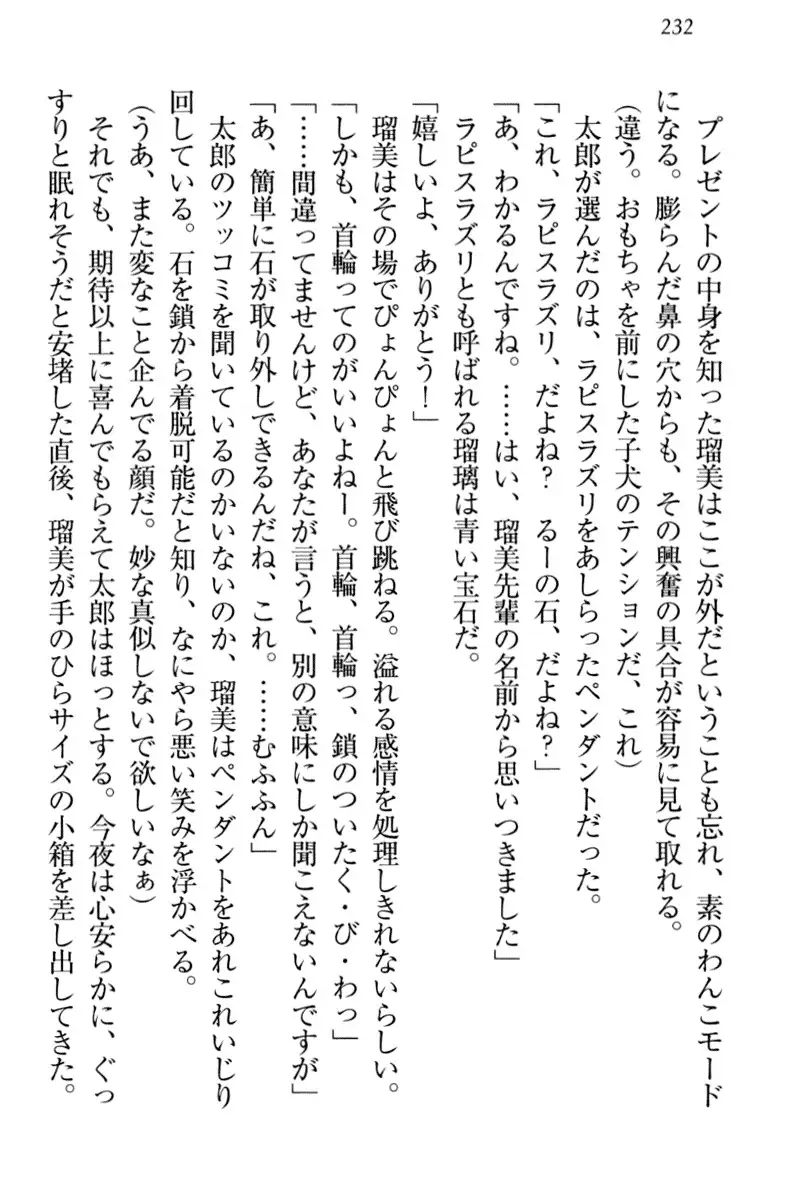 232
プレゼントの中身を知った瑠美はここが外だということも忘れ、素のわんこモード
になる。膨らんだ鼻の穴からも、その興奮の具合が容易に見て取れる。
(違う。おもちゃを前にした子犬のテンションだ、これ)
太郎が選んだのは、ラピスラズリをあしらったペンダントだった。
「これ、ラピスラズリ、だよね? るーの石、だよね?」
「あ、わかるんですね。……はい、瑠美先輩の名前から思いつきました」
ラピスラズリとも呼ばれる瑠璃は青い宝石だ。
「嬉しいよ、ありがとう!」
瑠美はその場でぴょんぴょんと飛び跳ねる。溢れる感情を処理しきれないらしい。
「しかも、首輪ってのがいいよねー。首輪、首輪っ、鎖のついたく・び・わっ」
「……間違ってませんけど、あなたが言うと、別の意味にしか聞こえないんですが」
「あ、簡単に石が取り外しできるんだね、これ。……むふふん」
太郎のツッコミを聞いているのかいないのか、瑠美はペンダントをあれこれいじり
回している。石を鎖から着脱可能だと知り、なにやら悪い笑みを浮かべる。
(うあ、また変なこと企んでる顔だ。妙な真似しないで欲しいなぁ)
それでも、期待以上に喜んでもらえて太郎はほっとする。今夜は心安らかに、ぐっ
すりと眠れそうだと安堵した直後、瑠美が手のひらサイズの小箱を差し出してきた。